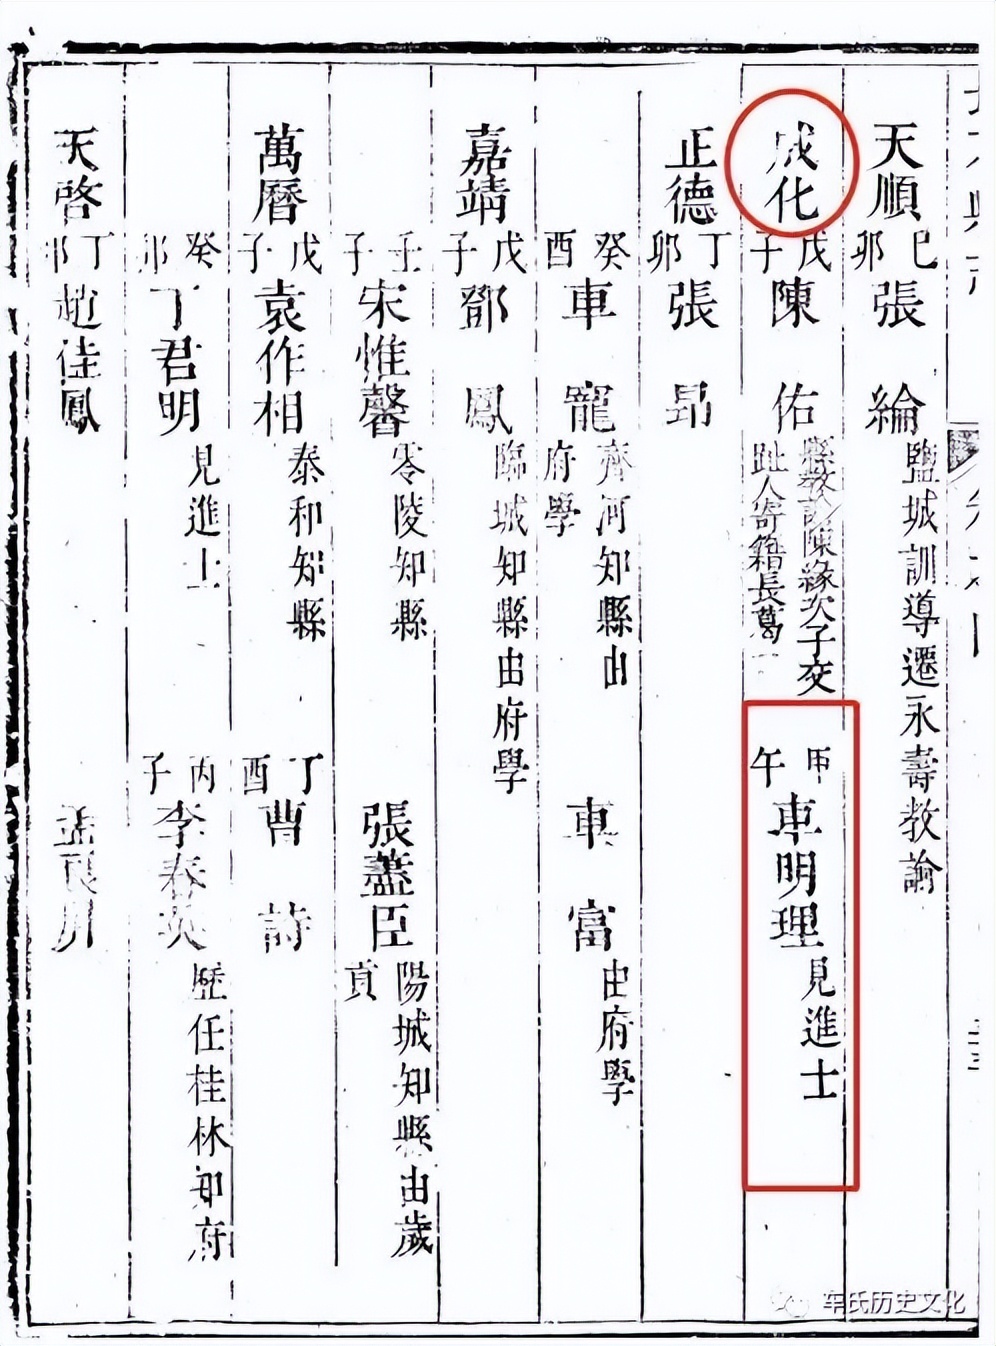 天順
己卯 張綸 鹽城訓導遷永壽教諭
成化
戊子 陳佑 縣教諭陳緣次子交
趾人寄籍長葛
甲午 車明理 見進士
正德
丁卯 張昂
癸酉 車寵 齊河知縣由
府學
車富 由府學
嘉靖
戊子 鄧鳳 臨城知縣由府學
壬子 宋惟馨 零陵知縣
張藎臣 陽城知縣由歲
貢
萬曆
戊子 袁作相 泰和知縣
丁酉 曹詩
癸卯 丁君明 見進士
丙子 李春 歷任桂林知府
天啓
丁卯 趙佳鳳
孟良
车氏历史文化